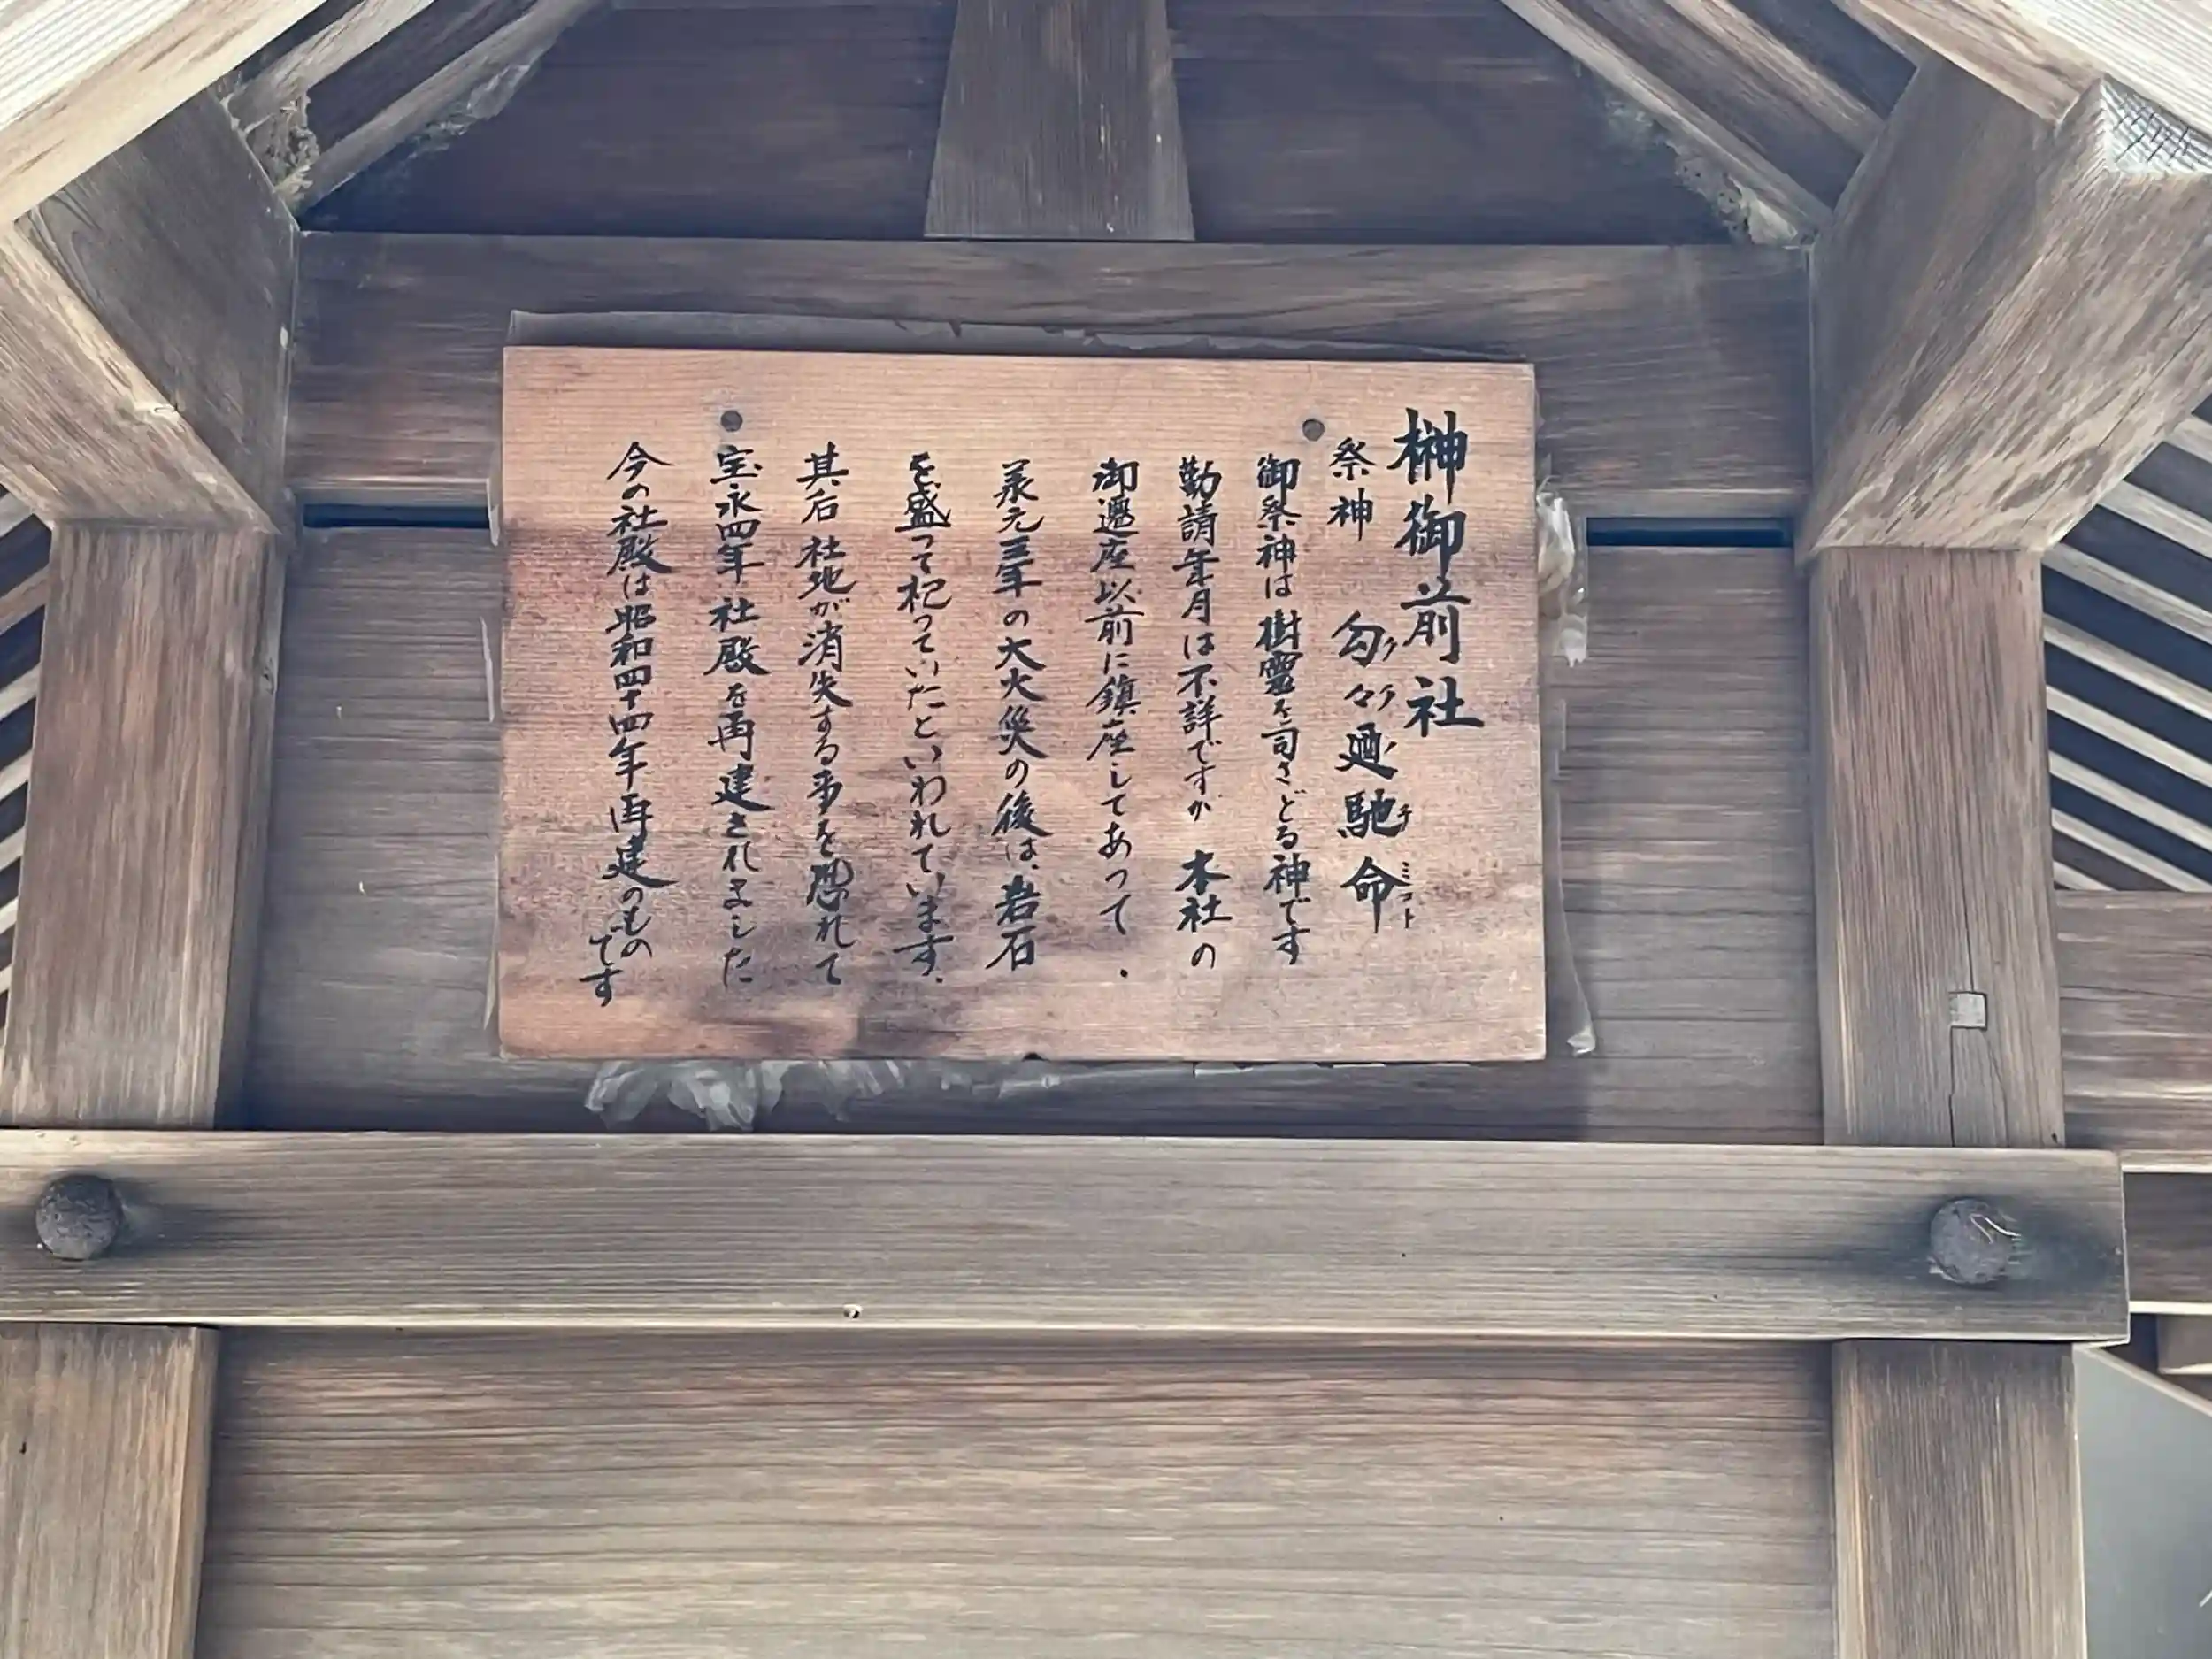 榊御前社
祭神 勾々廼馳命
御祭神は樹霊を司さどる神です
勤請年月は不詳ですが 本社の
御遷座以前に鎮座してあって.
元三年の大火災の後は、岩石
を盛って祀っていたといわれています.
其后社地が消失する事を恐れて
宝永四年社殿を再建されました
今の社殿は昭和四十四年再建のものです